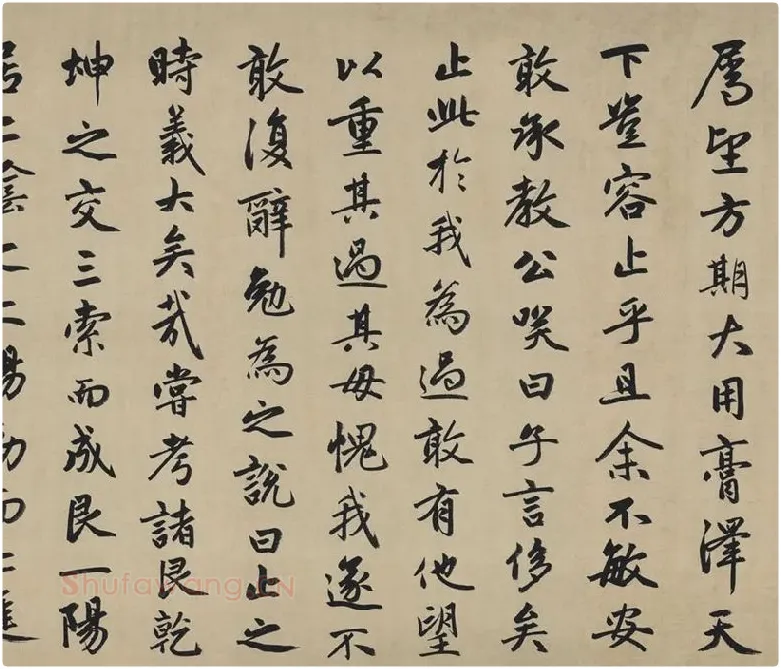 厲望方期大用膏澤天
下豈容止乎且余不敏安
敢承教公笑曰子言侈矣
止此於我為過敢有他望
以重其過其毋愧我遂不
敢復辭勉為之說曰止之
時義大矣哉嘗考諸艮乾
坤之交三索而成艮一陽
居二陰之上陽動而上進
Shufawang.CN